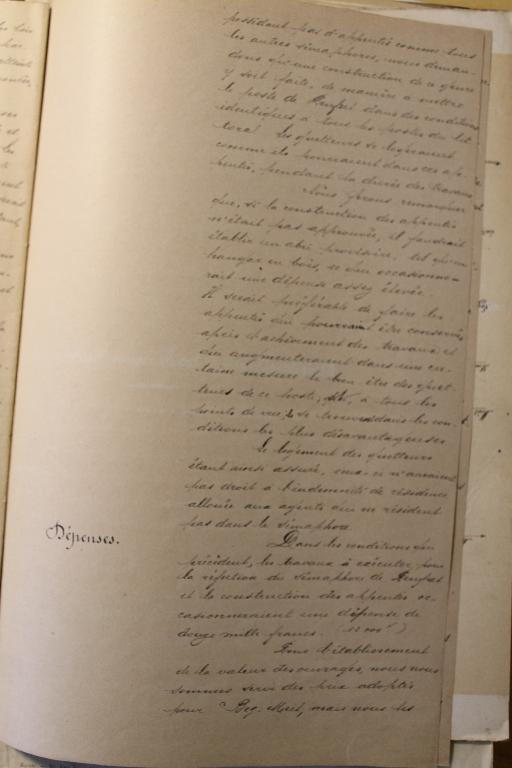 possédant pas d'appentis comme tous
les autres sémaphores, nous deman-
dons qu'une construction de ce genre
y soit faite, de manière à mettre
le poste de dans des conditions
identiques à tous les postes du lit-
toral. Les guetteurs se logeraient
comme ils pourraient dans ces ap-
pentis, pendant la durée des travaux.
Nous ferons remarquer
que, si la construction des appentis
n'était pas approuvée, il faudrait
établir un abri provisoire, tel qu'un
hangar en bois, ce qui occasionne-
rait une dépense assez élevée.
Il serait préférable de faire les
appentis qui pourraient être conservés
après d'achèvement des travaux et
qui augmenteraient dans une cer-
taine mesure le bien être des guet-
teurs de ce poste, qui, à tous les
points de vue, se trouve dans les con-
ditions les plus désavantageuses
Le logement des guetteurs
étant ainsi assuré, ceux-ci n'auraient
pas droit à l'indemnité de résidence
allouée aux agents qui ne résident
pas dans le sémaphore.
Dépenses.
Dans les conditions qui
précèdent, les travaux à exécuter pour
la réfection du sémaphore de
et la construction des appentis oc-
casionneraient une dépense de
douze mille francs. (12 000f)
Pour l'établissement
de la valeur des ouvrages, nous nous
sommes servi des prix adoptés
pour mais nous les